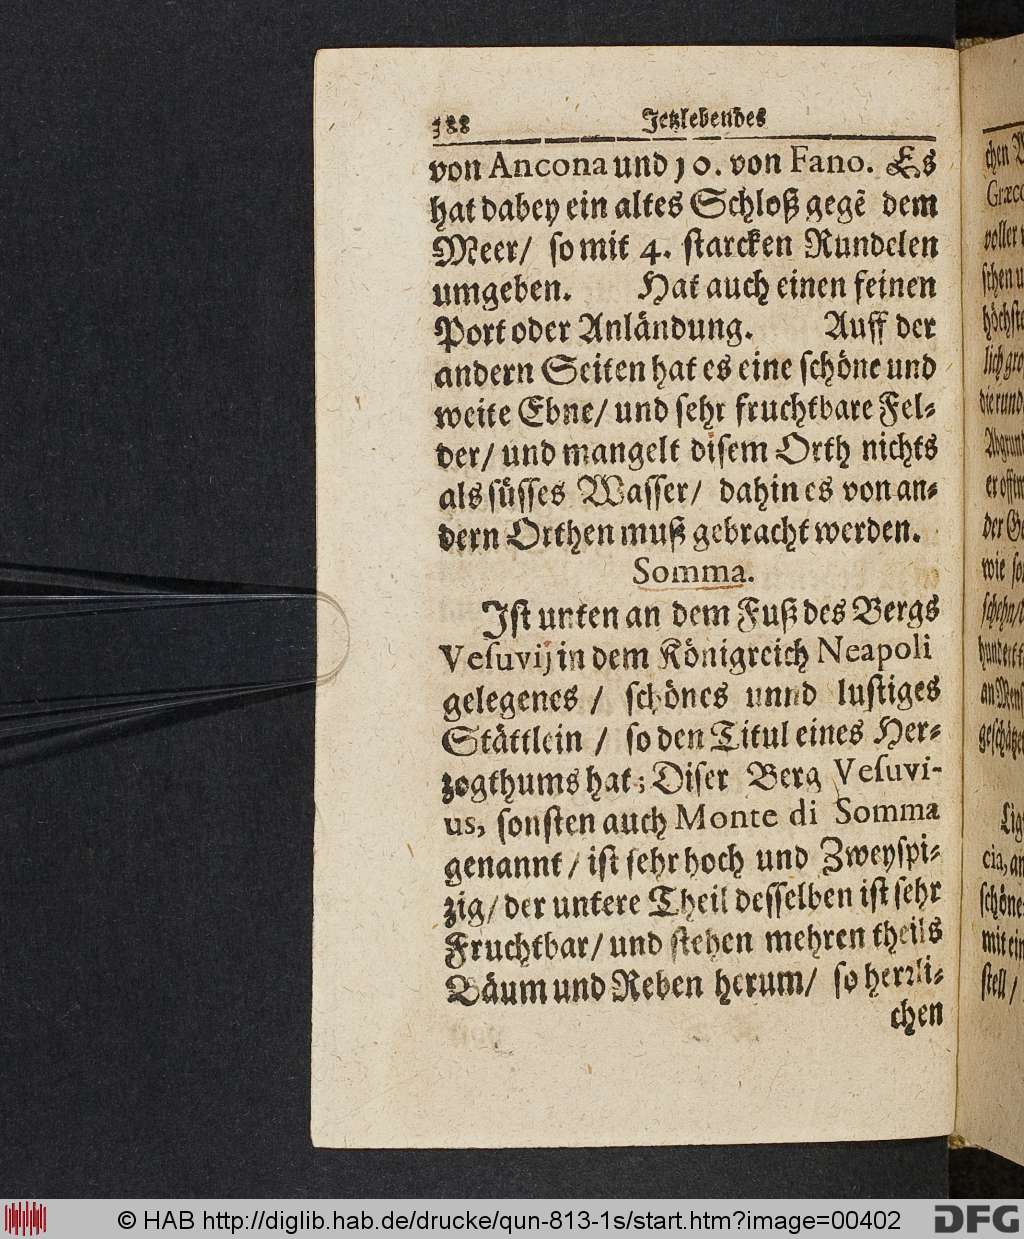 388 Jetzlebendes
von Ancona und 10. von Fano. Es
hat dabey ein altes Schloß gegẽ dem
Meer/ so mit 4. starcken Rundelen
umgeben. Hat auch einen feinen
Port oder Anländung. Auff der
andern Seiten hat es eine schöne und
weite Ebne/ und sehr fruchtbare Fel-
der/ und mangelt disem Orth nichts
als süsses Wasser/ dahin es von an-
dern Orthen muß gebracht werden.
Somma.
Ist unten an dem Fuß des Bergs
Vesuvij in dem Königreich Neapoli
gelegenes / schönes unnd lustiges
Stättlein / so den Titul eines Her-
zogthums hat; Diser Berg Vesuvi-
us, sonsten auch Monte di Somma
genannt / ist sehr hoch und Zweyspi-
zig/ der untere Theil desselben ist sehr
Fruchtbar/ und stehen mehren theils
Bäum und Reben herum/ so herrli-
chen
chen
Græc
voller
schen
höchst
lich
die rund
Abgrun
er
der
wie
hundert
an
cia, an
schöne
mit ein
stell /
© HAB http://diglib.hab.de/drucke/qun-813-1s/start.htm?image=00402
DFG